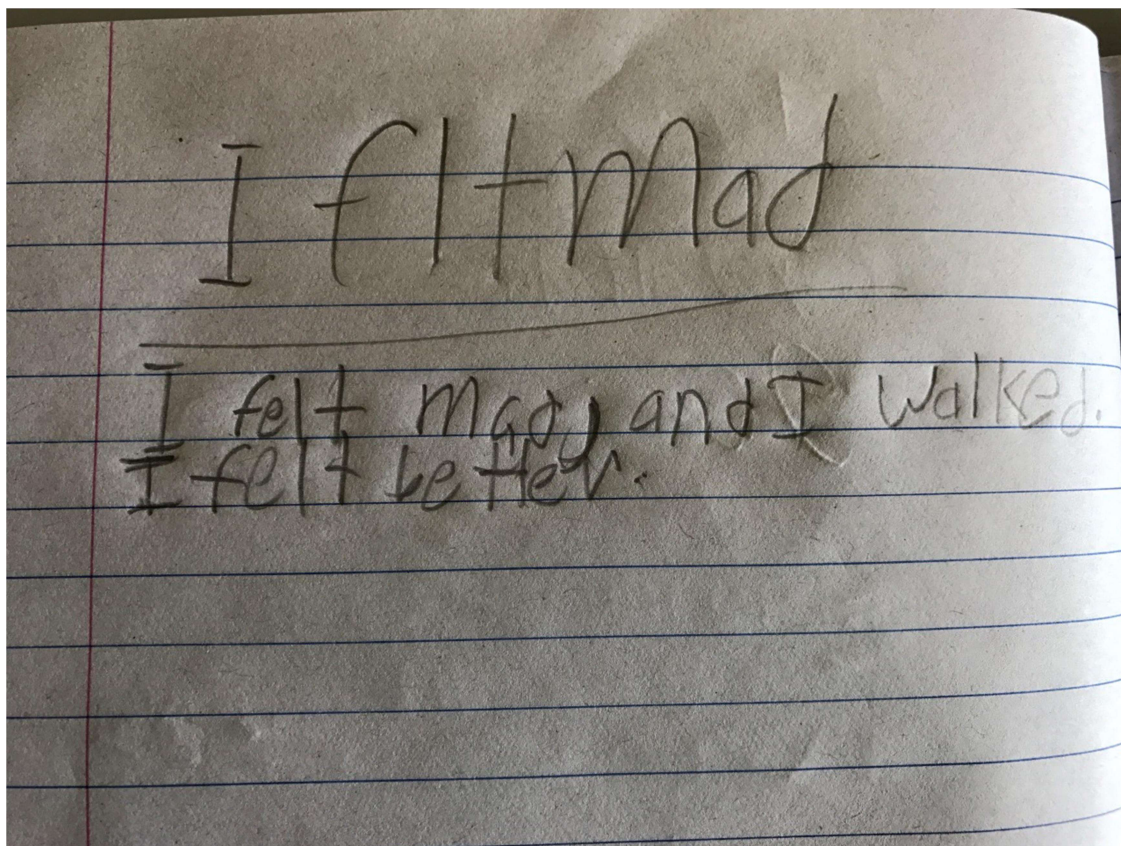 I flt mad
I felt mad, and I walked.
I felt better.